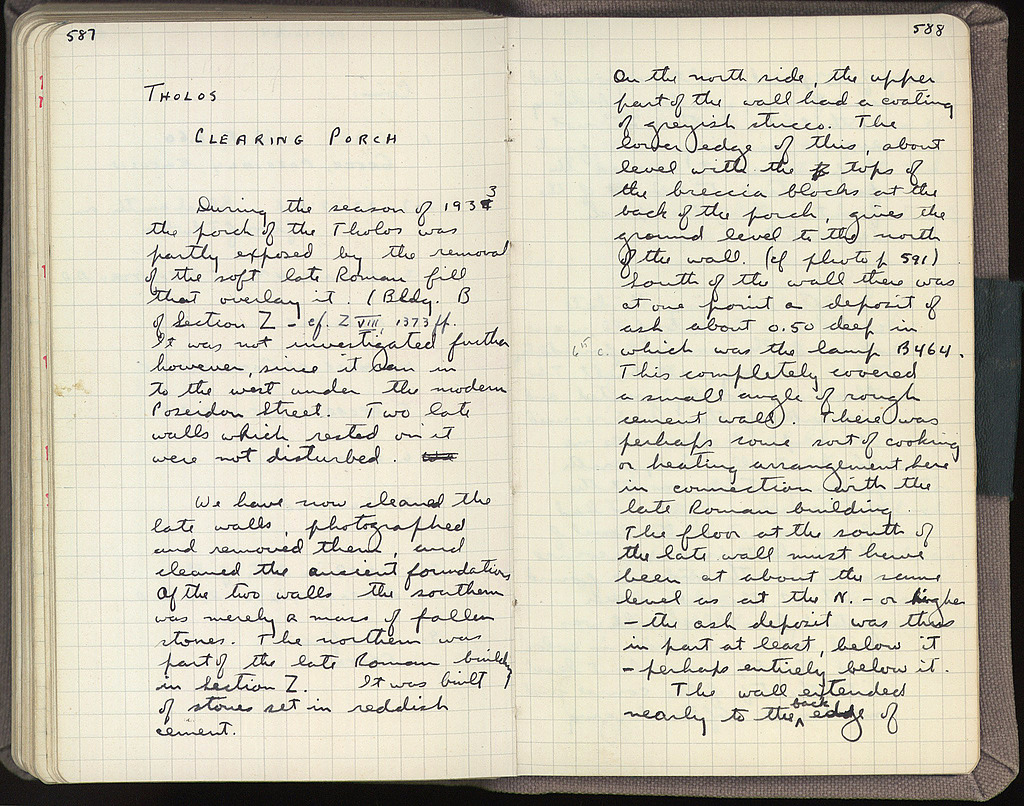 587
THOLOS
CLEARING PORCH
During the season of 1933
the porch of the Tholos was
partly exposed by the removal
of the soft late Roman fill
that overlay it. (Bldg. B
of Section Z - cf. Z VIII, 1373 ff.
It was not investigated further
however, since it ran in
to the west under the modern
Poseidon Street. Two late
walls which rested on it
were not disturbed.
We have now cleaned the
late walls, photographed
and removed them, and
cleaned the ancient foundations
Of the two walls the southern
was merely a mass of fallen
stones. The northern was
part of the late Roman building
in Section Z. It was built
of stones set in reddish
cement.
588
On the north side, the upper
part of the wall had a coating
of greyish stucco. The
lower edge of this, about
level with the tops of
the breccia blocks at the
back of the porch, gives the
ground level to the north
of the wall. (cf photo p 591)
South of the wall there was
at one point a deposit of
ash about 0.50 deep in
6th c. which was the lamp B464.
This completely covered
a small angle of rough
cement wall). There was
perhaps some sort of cooking
or heating arrangement here
in connection with the
late Roman building.
The floor at the south of
the late wall must have
been at about the same
level as at the N. - or higher
- the ash deposit was thus
in part at least, below it
- perhaps entirely below it.
The wall extended
nearly to the back edge of